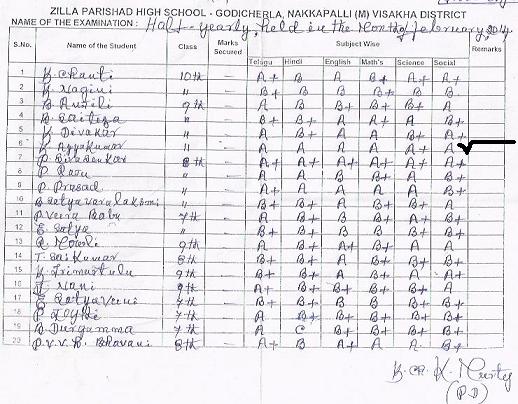 ZILLA PARISHAD HIGH SCHOOL - GODICHERLA, NAKKAPALLI (M) VISAKHA DISTRICT
NAME OF THE EXAMINATION : Half-Yearly held in the Month of february, 2014
S.No. Name of the Student Class Marks Secured Subject Wise Remarks
Telugu Hindi English Math's Science Social
1 K. Chanti 10th — A+ B A B+ A+ A+
2 K. Nagini " — B B B B+ B B
3 B. 9th — A B B+ B+ B+ A
4 B. " — B+ B+ A A+ A B+
5 K. Divakar " — A B+ A A B+ A+
6 K. Ajaykumar " — A A A A A+ A+
7 P. 8th — A+ A+ A+ A+ A+ A+
8 P. Raou " — A A B B+ A B+
9 P. Prasad " — A+ A A A A B+
10 B. Satyavaralakshmi " — B+ B+ A B+ A B+
11 P. Veera Babu 7th — A B+ B B A+ B+
12 E. Satya " — B+ B+ A B+ B B+
13 R. Mouli 9th — A B+ A+ B+ A A
14 T. Sai Kumar 8th — A B+ A B+ B+ B+
15 K. Trimurtulu 9th — B+ B+ A B+ A A+
16 I. Nani 9th — A+ B+ B+ B+ B+ A
17 E. Satyaveni 7th — B+ B+ B B B+ B+
18 P. 7th — A B+ B+ B+ B+ B+
19 B. Durgamma 7th — A C B+ B+ B+ B+
20 P.V.V.L. Bhavani 8th — A+ B A+ A A B+
K. Ch. K. Murty
(P.D)